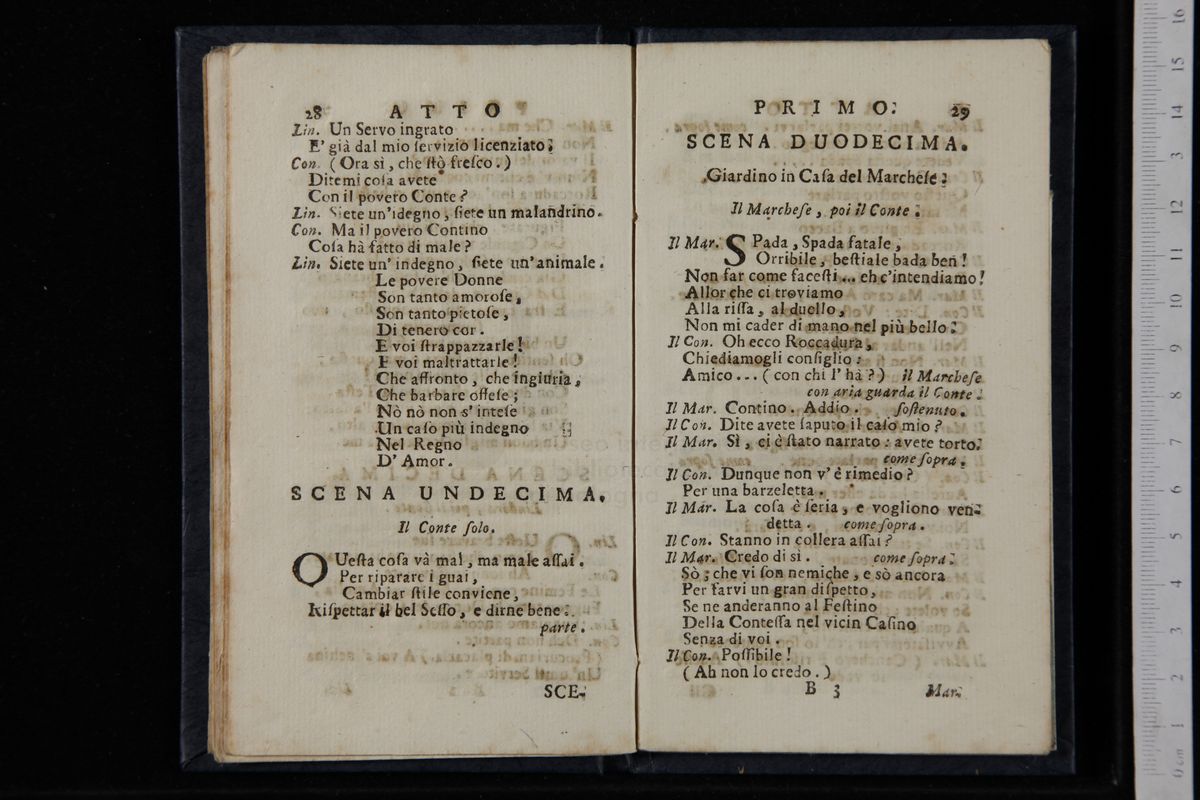 28 ATTO
Lin. Un Servo ingrato
E' già dal mio ſervizio licenziato.
Con. (Ora sì, che ſtò freſco.)
Ditemi coſa avete
Con il povero Conte?
Lin. Siete un'idegno, ſiete un malandrino.
Con. Ma il povero Contino
Coſa hà fatto di male?
Lin. Siete un' indegno, ſiete un' animale.
Le povere Donne
Son tanto amoroſe,
Son tanto pietoſe,
Di tenero cor.
E voi ſtrappazzarle!
E voi maltrattarle!
Che affronto, che ingiuria,
Che barbare offeſe;
Nò nò non s' inteſe
Un caſo più indegno
Nel Regno
D' Amor.
SCENA UNDECIMA.
Il Conte ſolo.
QUeſta coſa và mal, ma male aſſai.
Per riparare i guai,
Cambiar ſtile conviene,
Riſpettar il bel Seſſo, e dirne bene.
parte.
SCE-
PRIMO. 29
SCENA DUODECIMA.
Giardino in Caſa del Marcheſe.
Il Marcheſe, poi il Conte.
Il Mar. SPada, Spada fatale,
Orribile, beſtiale bada ben!
Non far come faceſti... eh c'intendiamo!
Allor che ci troviamo
Alla riſſa, al duello,
Non mi cader di mano nel più bello.
Il Con. Oh ecco Roccadura,
Chiediamogli conſiglio:
Amico... (con chi l' hà?) il Marcheſe
con aria guarda il Conte.
Il Mar. Contino. Addio. ſoſtenuto.
Il Con. Dite avete ſaputo il caſo mio?
Il Mar. Sì, ci è ſtato narrato: avete torto.
come ſopra.
Il Con. Dunque non v' è rimedio?
Per una barzeletta.
Il Mar. La coſa è ſeria, e vogliono ven-
detta. come ſopra.
Il Con. Stanno in collera aſſai?
Il Mar. Credo di sì. come ſopra.
Sò; che vi ſon nemiche, e sò ancora
Per farvi un gran diſpetto,
Se ne anderanno al Feſtino
Della Conteſſa nel vicin Caſino
Senza di voi.
Il Con. Poſſibile!
(Ah non lo credo.)
B 3 Mar.